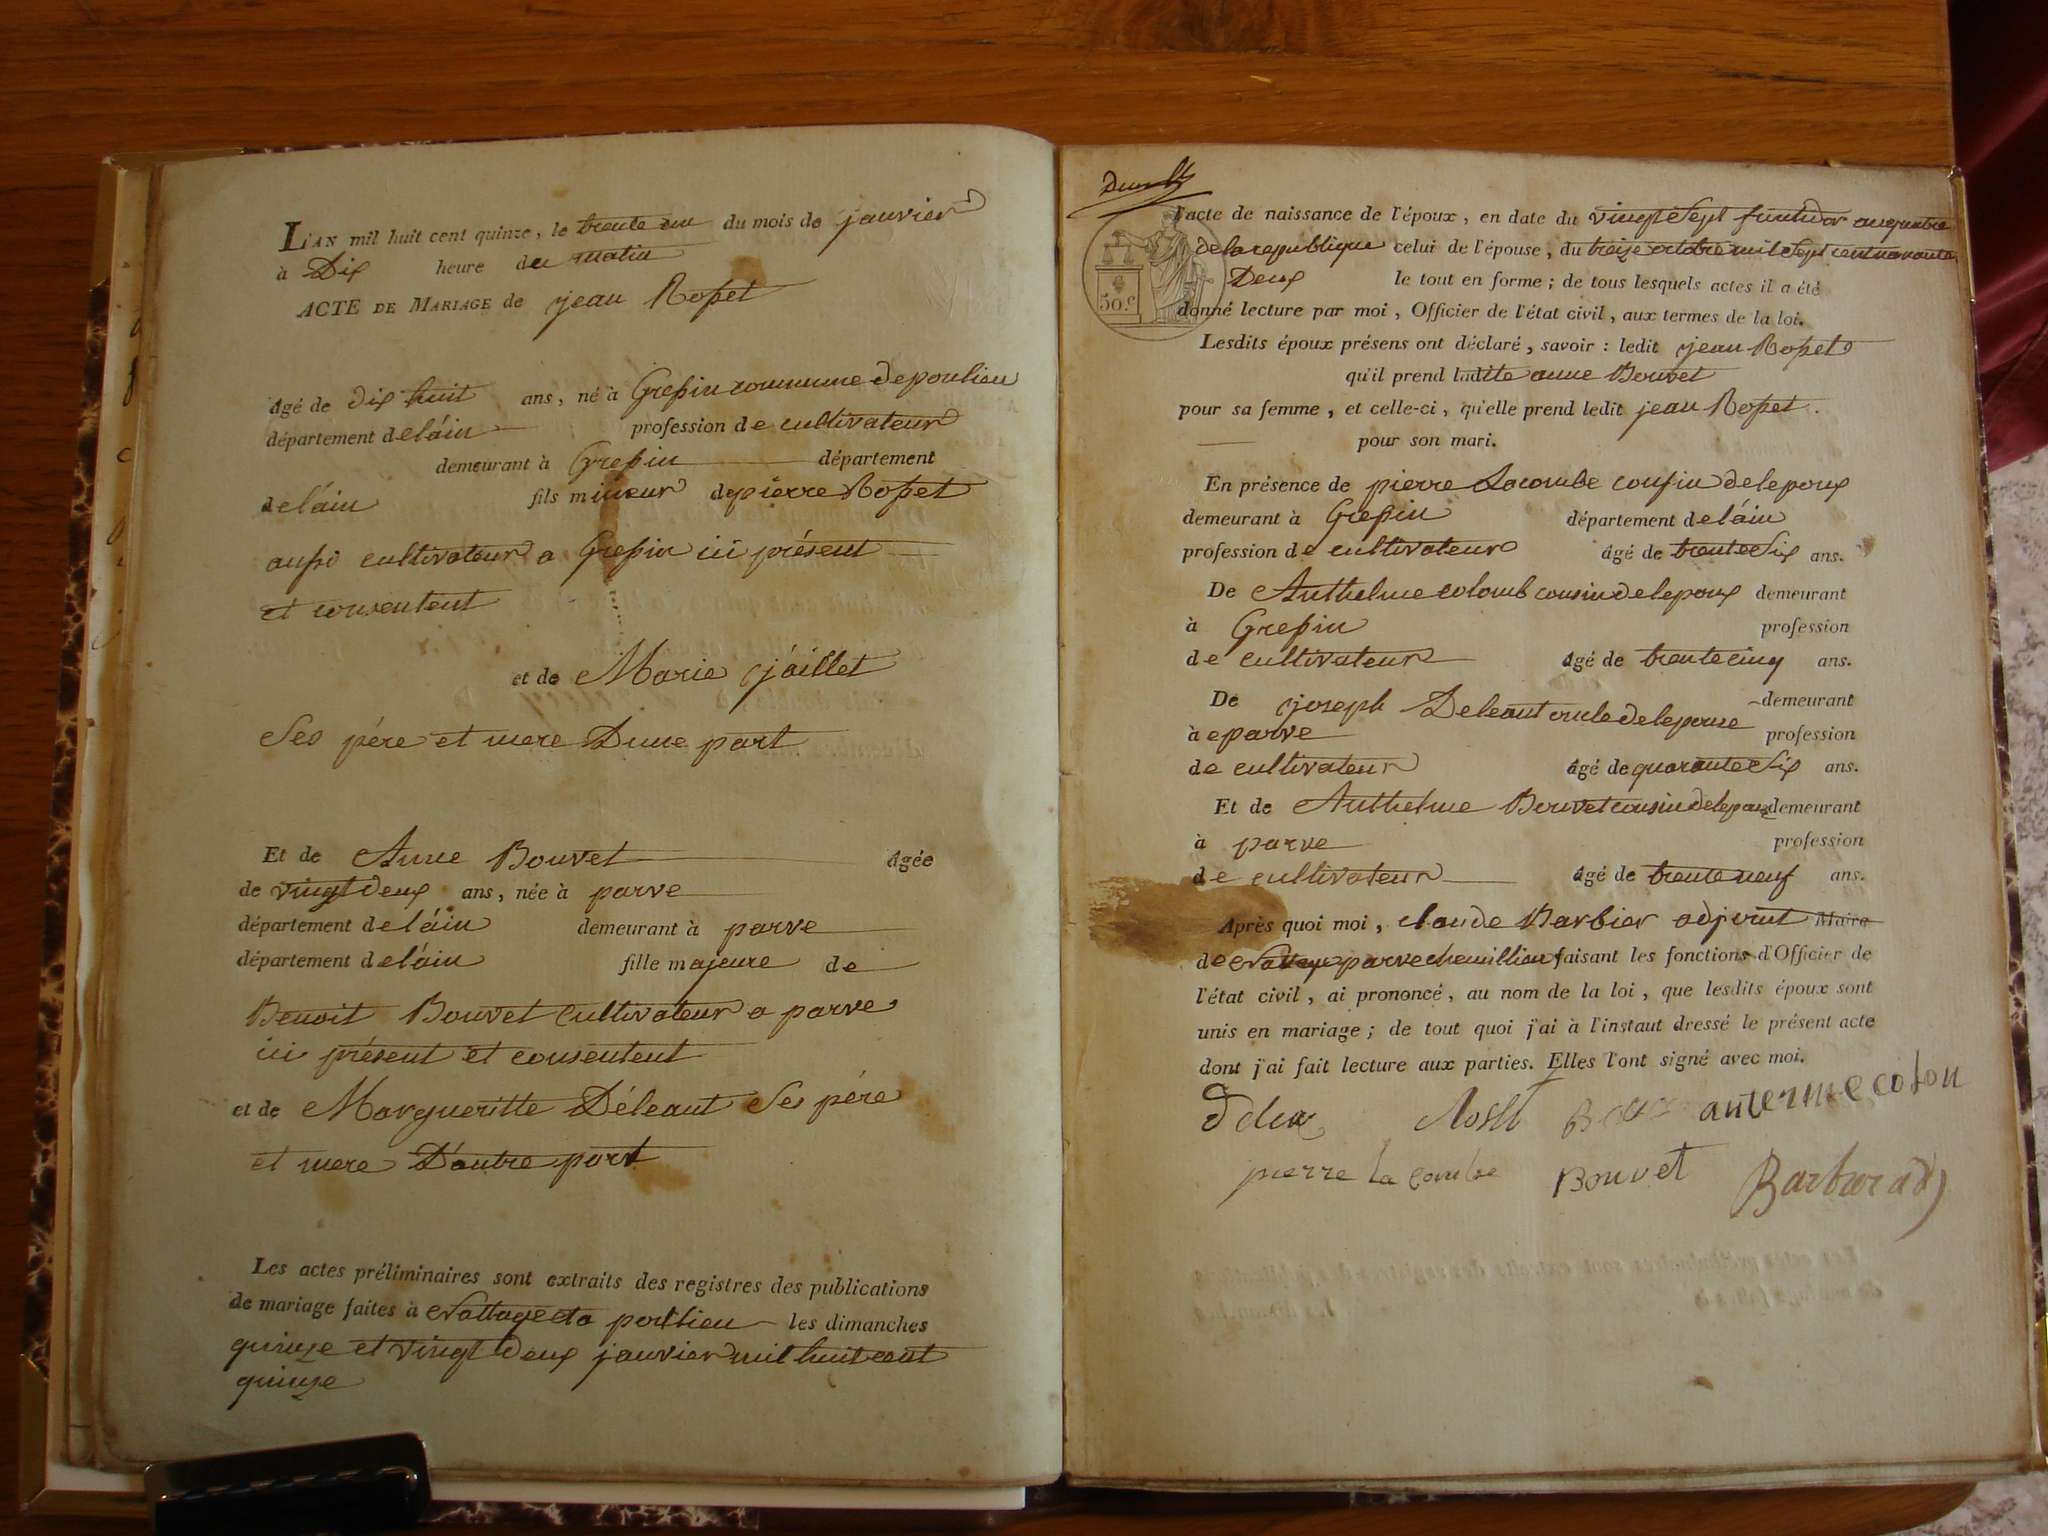 L'AN mil huit cent quinze, le trente un du mois de janvier
à Dix heure du matin
ACTE DE MARIAGE de jean Rosset
âgé de dix huit ans, né à Gressin commune de poulieu
département de láin profession de cultivateur
demeurant à Gressin département
de láin fils mineur de pierre Rosset
aussi cultivateur a Gressin ici présent
et consentent
et de Marie jaillet
Ses pére et mere Dune part
Et de Anne Bouvet âgée
de vingt deux ans, née à parve
département de láin demeurant à parve
département de láin fille majeure de
Benoit Bouvet Cultivateur a parve
ici présent et consentent
et de Margueritte Déleaut Ses pére
et mere D'autre part
Les actes préliminaires sont extraits des registres des publications
de mariage faites à Nattage et a les dimanches
quinze et vingt deux janvier mil huit cent
quinze
l'acte de naissance de l'époux, en date du vingt Sept fructidor an quatre
de la republique celui de l'épouse, du treize octobre mil Sept cent
Deux le tout en forme; de tous lesquels actes il a été
50.c
donné lecture par moi, Officier de l'état civil, aux termes de la loi.
Lesdits époux présens ont déclaré, savoir: ledit jean Rosset
qu'il prend ladite anne Bouvet
pour sa femme, et celle-ci, qu'elle prend ledit jean Rosset.
pour son mari.
En présence de pierre Lacombe cousin de lepoux
demeurant à Gressin département de láin
profession de cultivateur âgé de trente Six ans.
De Anthelme colomb cousin de lepoux demeurant
à Gressin profession
de cultivateur âgé de trente cinq ans.
De joseph Deleaut oncle de lepouse demeurant
à eparve profession
de cultivateur âgé de quarante Six ans.
Et de Anthelme Bouvet cousin de demeurant
à parve profession
de cultivateur âgé de trente neuf ans.
Après quoi moi, claude Barbier adjoint Maire
de Nattage parve chemillieu faisant les fonctions d'Officier de
l'état civil, ai prononcé, au nom de la loi, que lesdits époux sont
unis en mariage; de tout quoi j'ai à l'instant dressé le présent acte
dont j'ai fait lecture aux parties. Elles l'ont signé avec moi.
anterme colon
pierre la combe Bouvet